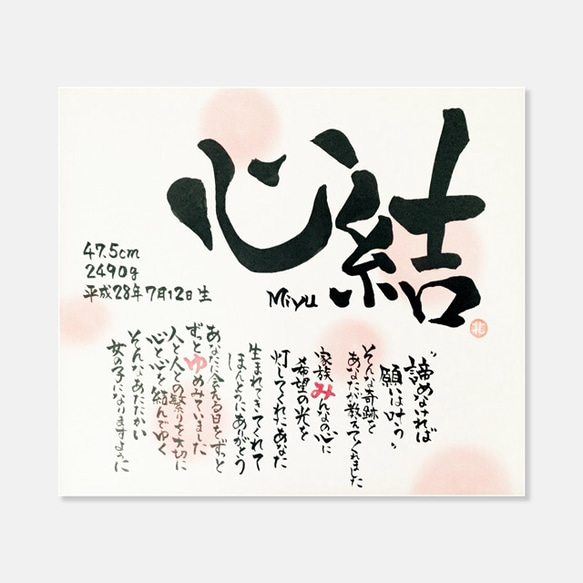 心結
Miyu
47.5cm
2490g
平成28年7月12日生
"諦めなければ
願いは叶う"
そんな奇跡を
あなたが教えてくれました
家族みんなの心に
希望の光を
灯してくれたあなた
生まれてきてくれて
ほんとうにありがとう
あなたに会える日をずっと
ずっとゆめみていました
人と人との繋りを大切に
心と心を結んでゆく
そんなあたたかい
女の子になりますように